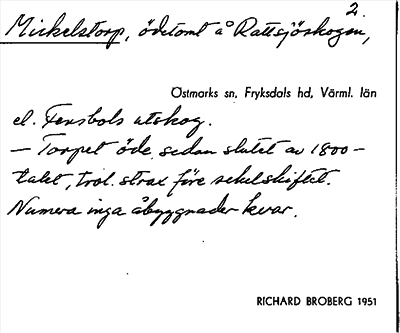 2.
Mickelstorp, ödetomt å Rattsjöskogen,
Östmarks sn, Fryksdals hd, Värml. län
el. Fensbols utskog.
– Torpet öde sedan slutet av 1800-
talet, trol. strax före sekelskiftet.
Numera inga åbyggnader kvar.
RICHARD BROBERG 1951